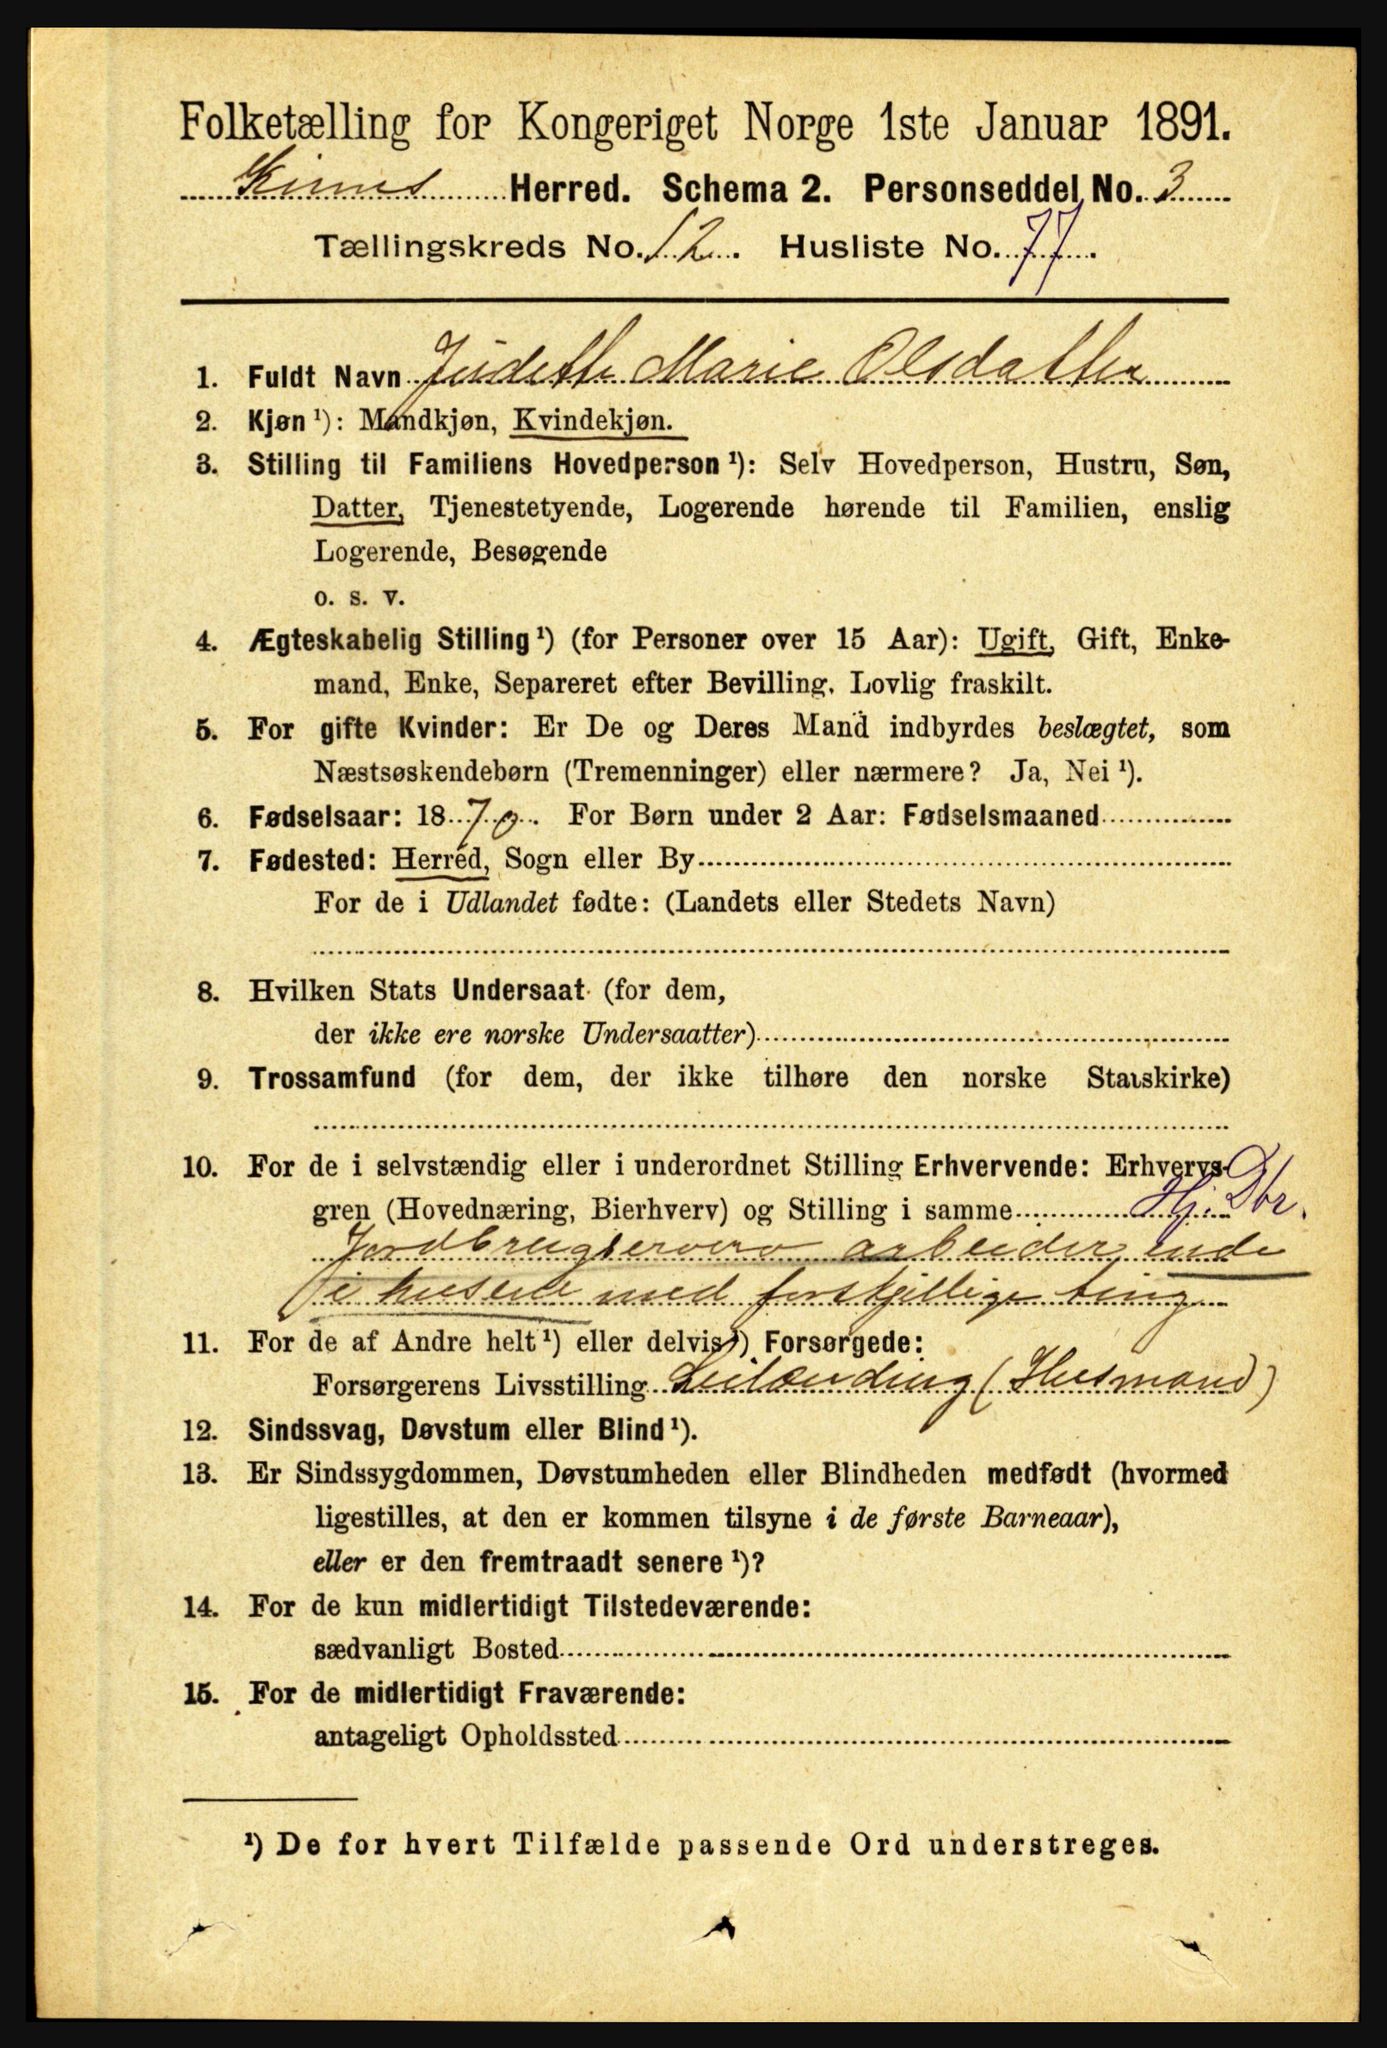 Folketælling for Kongeriget Norge 1ste Januar 1891.
Kinns Herred. Schema 2. Personseddel No. 3
Tællingskreds No. 12. Husliste No. 77.
1. Fuldt Navn Judette Marie Olsdatter
2. Kjøn ¹): Mandkjøn, Kvindekjøn.
3. Stilling til Familiens Hovedperson ¹): Selv Hovedperson, Hustru, Søn,
Datter, Tjenestetyende, Logerende hørende til Familien, enslig
Logerende, Besøgende
o. s. v.
4. Ægteskabelig Stilling ¹) (for Personer over 15 Aar): Ugift, Gift, Enke-
mand, Enke, Separeret efter Bevilling, Lovlig fraskilt.
5. For gifte Kvinder: Er De og Deres Mand indbyrdes beslægtet, som
Næstsøskendebørn (Tremenninger) eller nærmere? Ja, Nei ¹).
6. Fødselsaar: 1870. For Børn under 2 Aar: Fødselsmaaned
7. Fødested: Herred, Sogn eller By
For de i Udlandet fødte: (Landets eller Stedets Navn)
8. Hvilken Stats Undersaat (for dem,
der ikke ere norske Undersaatter)
9. Trossamfund (for dem, der ikke tilhøre den norske Statskirke)
10. For de i selvstændig eller i underordnet Stilling Erhvervende: Erhvervs-
gren (Hovednæring, Bierhverv) og Stilling i samme Hj. Dbr.
arbeider inde
i husene med forskjellige ting
11. For de af Andre helt ¹) eller delvis ¹) Forsørgede:
Forsørgerens Livsstilling Leilænding (Husmand)
12. Sindssvag, Døvstum eller Blind ¹).
13. Er Sindssygdommen, Døvstumheden eller Blindheden medfødt (hvormed
ligestilles, at den er kommen tilsyne i de første Barneaar),
eller er den fremtraadt senere ¹)?
14. For de kun midlertidigt Tilstedeværende:
sædvanligt Bosted
15. For de midlertidigt Fraværende:
antageligt Opholdssted
¹) De for hvert Tilfælde passende Ord understreges.